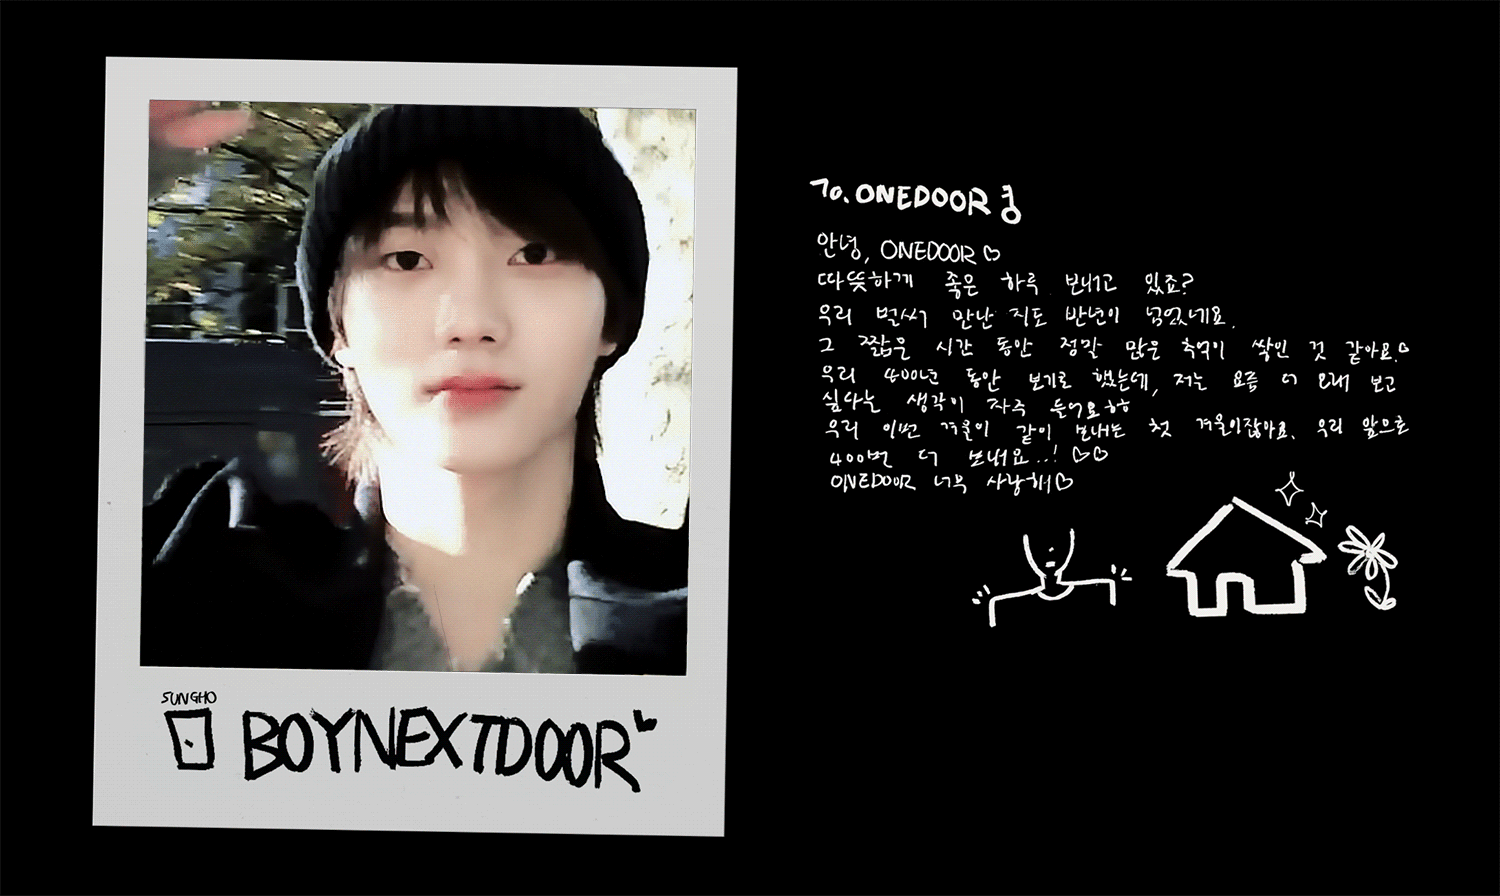 SUNGHO
BOYNEXTDOOR
To. ONEDOOR
안녕, ONEDOOR♡
따뜻하게 좋은 하루 보내고 있죠?
우리 벌써 만난 지도 반년이 넘었네요.
그 짧은 시간 동안 정말 많은 추억이 쌓인 것 같아요♡
우리 400년 동안 보기로 했는데, 저는 요즘 더 오래 보고
싶다는 생각이 자주 들어요ㅎㅎ
우리 이번 겨울이 같이 보내는 첫 겨울이잖아요. 우리 앞으로
400번 더 보내요..! ♡♡
ONEDOOR 너무 사랑해♡